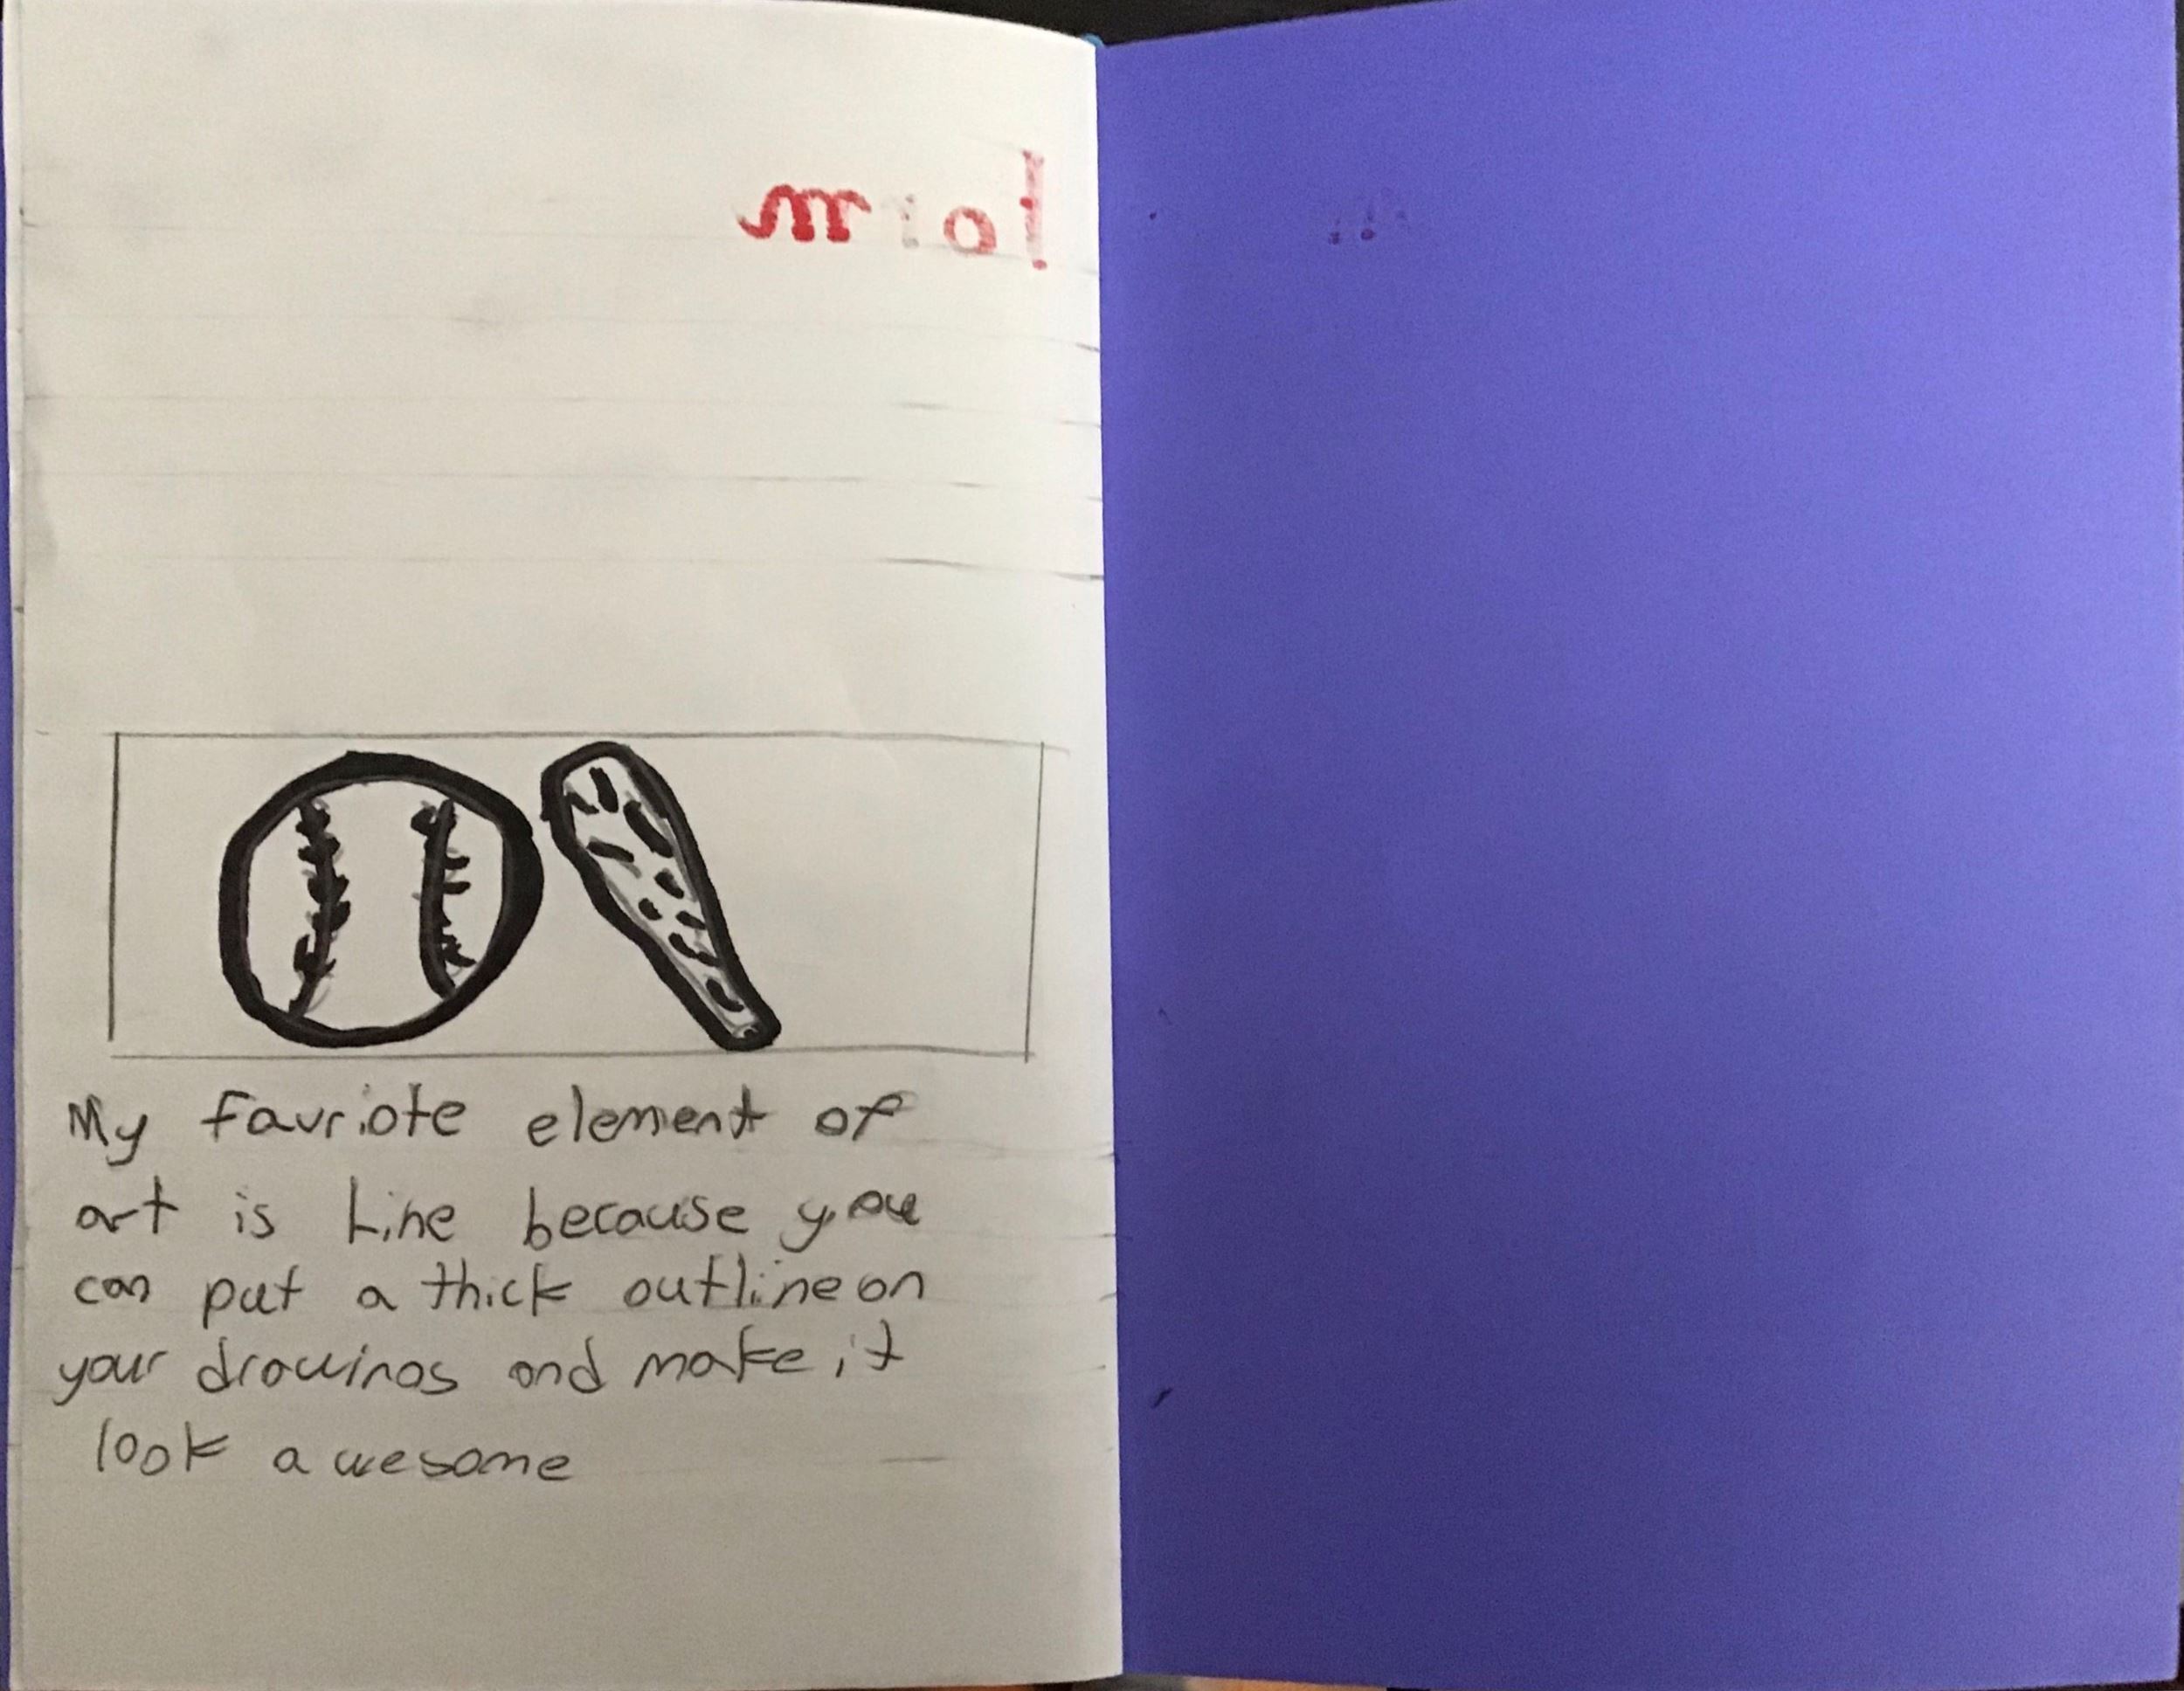 My favriote element of
art is Line because you
can put a thick outline on
your drawings and make it
look awesome